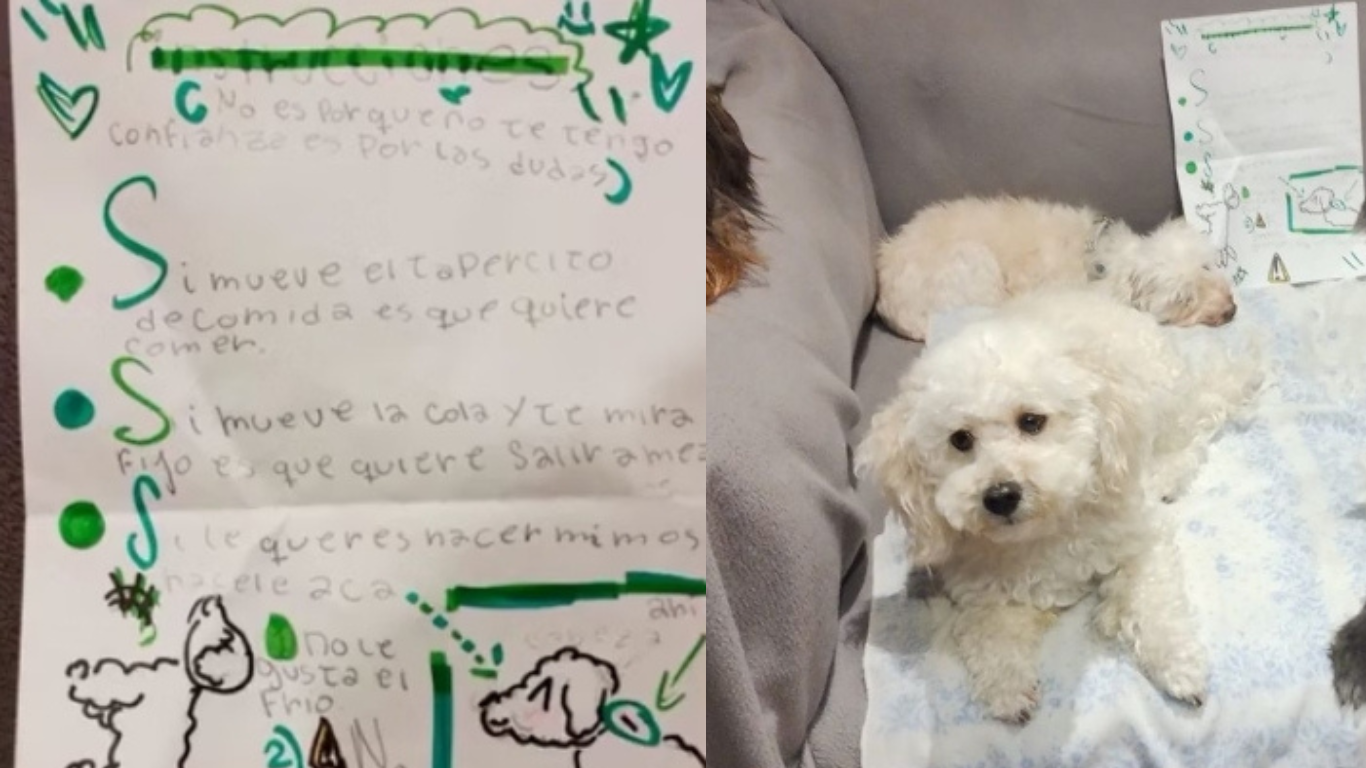 Instrucciones
(No es porque no te tengo
confianza es por las dudas)
Si mueve el tapercito
de comida es que quiere
comer.
Si mueve la cola y te mira
fijo es que quiere salir a mea
Si le queres hacer mimos
hacele aca
ahi
cabeza
No le
gusta el
frio
2) N